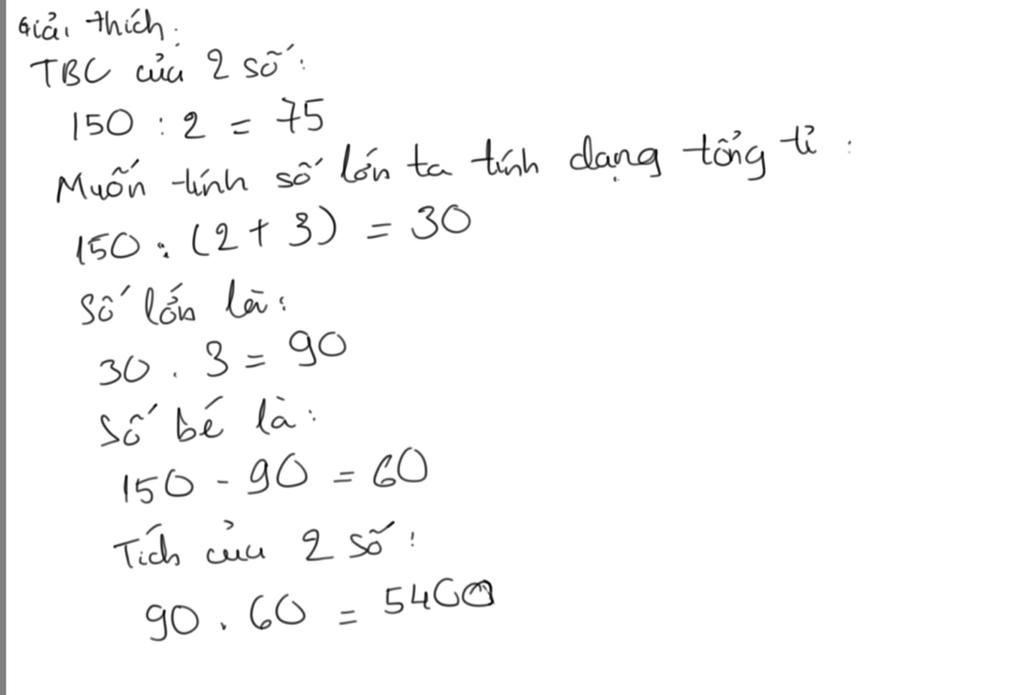 Giải thích:
TBC của 2 số:
150 : 2 = 75
Muốn tính số lớn ta tính dạng tổng tỉ :
150 : (2 + 3) = 30
Số lớn là:
30 . 3 = 90
Số bé là:
150 - 90 = 60
Tích của 2 số:
90 . 60 = 5400